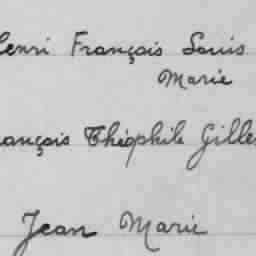 Henri François Louis
Marie
François Théophile Gilles
Jean Marie